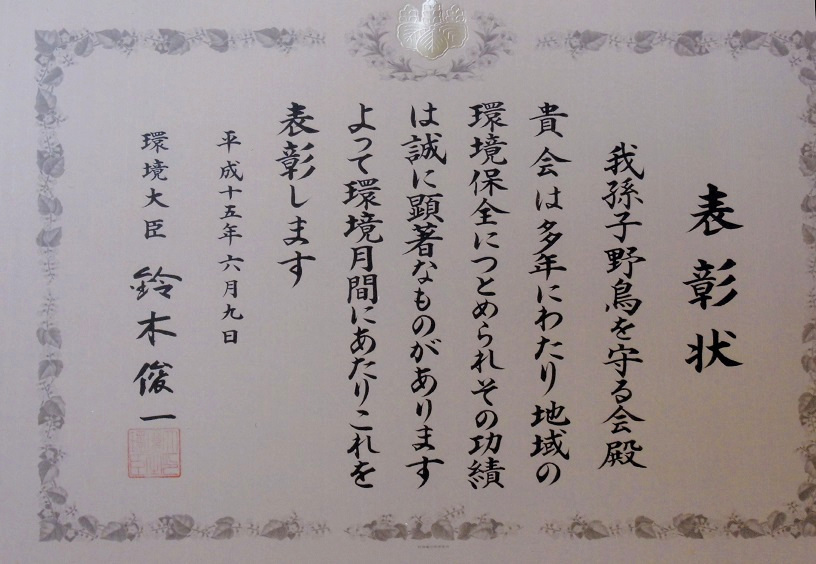 表彰状
我孫子野鳥を守る会殿
貴会は多年にわたり地域の
環境保全につとめられその功績
は誠に顕著なものがあります
よって環境月間にあたりこれを
表彰します
平成十五年六月九日
環境大臣 鈴木俊一